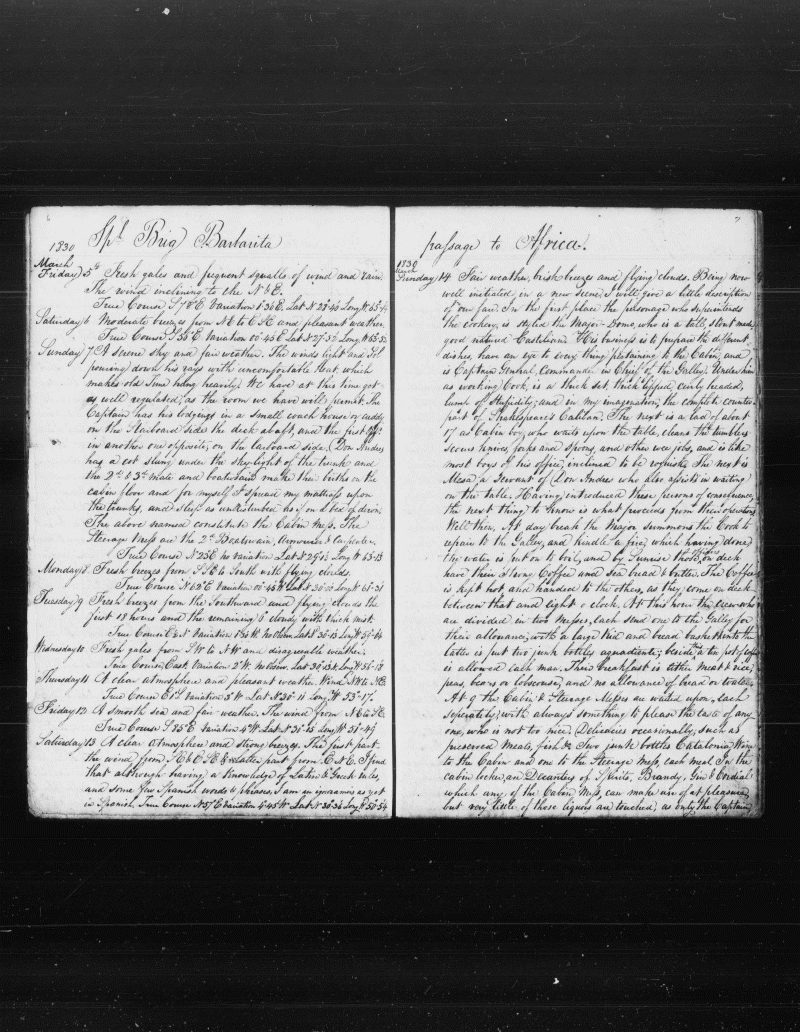 6
1830 Spl. Brig Barbarita
March
Friday 5th Fresh gales and frequent squalls of wind and rain.
The wind inclining to the N & E.
True Course S 78 E Variation 1°36 E. Lat N 28-46 Long W
Saturday 6 Moderate breezes from NE to ESE and pleasant weather.
True Course S 55 E Variation 00-45 E Lat N 27-52 Long W 65-52
Sunday 7 A serene sky and fair weather. The winds light and Sol
pouring down his rays with uncomfortable heat which
makes old Time hang heavily. We have at this time got
as well regulated, as the room we have will permit. The
Captain has his lodgings in a small coach house or caddy
on the Starboard side the deck abaft, and the first Offr.
in another one opposite, on the larboard side. Don Andres
has a cot slung under the sky-light of the trunk and
the 2nd & 3rd mate and boatswain make their births on the
cabin floor and for myself I spread my mattrass upon
the trunks, and sleep as undisturbed as if on a bed of down.
The above seamed constitute the Cabin mess. The
Steerage Mess are the 2nd Boatswain, Armourer & Carpenter.
True Course N 25 E no Variation Lat N 29-12 Long W 65-13
Monday 8 Fresh breezes from SSE to South with flying clouds.
True Course N 62 E Variation 00-45 W Lat N 30-00 Long W 61-31
Tuesday 9 Fresh breezes from the Southward and flying clouds the
first 18 hours and the remaining 6 cloudy with thick mist.
True Course Variation 1°30 W. no Obsrn. Lat N 30-13 Long W
Wednesday 10 Fresh gales from SW to NW and disagreeable weather.
True Course East Variation 2° W. no Obsrv. Lat 30-13 N Long W 56-18
Thursday 11 A clear atmosphere and pleasant weather. Wind NW to NE.
True Course E 1° S Variation 3° W Lat N 30-11 Long W 53-17.
Friday 12 A smooth sea and fair weather. The wind from N to SE.
True Course S 75 E Variation 4° W Lat N Long W 51-49
Saturday 13 A clear Atmosphere and strong breezes. The first part
the wind from E to ESE & latter part from ENE. I find
that although having a knowledge of Latin & Greek rules,
and some few Spanish words & phrases, I am an ignoramus as yet
in Spanish. True Course N 57 E Variation 4°45 W Lat N 30-36 Long W 50-54
7
passage to Africa.
1830
March
Sunday 14 Fair weather, brisk breezes and flying clouds. Being now
well initiated in a new scene, I will give a little description
of our fair. In the first place the personage who superintends
the cookery, is styled the Major-Domo, who is a tall, stout made,
good natured Castilian. His business is to prepare the different
dishes, have an eye to every thing pertaining to the Cabin, and
is Captain General Commander in Chief of the Galley. Under him
as working Cook, is a thick set, thick lipped, curly headed,
lump of stupidity, and in my imagination, the complete counter-
part of Shakespeare's Caliban. The next is a lad of about
17 as Cabin boy, who waits upon the table, cleans the tumblers
scours knives, forks and spoons, and other wee jobs, and is like
most boys of his office, inclined to be roguish. The next is
Mesa, a Servant of Don Andres who also assists in waiting
on the table. Having introduced these persons of consequence,
the next thing to know is what proceeds from their operations
Well then, At day break the Major summons the Cook to
repair to the Galley, and kindle a fire, which having done
the water is put on to boil, and by Sunrise those Officers on deck
have their Strong Coffee and Sea bread & butter. The Coffee
is kept hot and handed to the others, as they come on deck
between that and eight o clock. At this hour the crew who
are divided in two Messes, each send one to the Galley for
their allowance, with a large Kid and bread basket into the
latter is put two junk bottles aquadiente; beside a tin pot of coffee
is allowed each man. Their breakfast is either meat & rice,
peas, beans or lobscouse, and no allowance of bread or water.
At 9 the Cabin & Steerage Messes are waited upon, each
seperately, with always something to please the taste of any
one, who is not too nice. Delicacies occasionally, such as
preserved Meats, fish &c Two junk bottles Catalonia Wine
to the Cabin and one to the Steerage Mess, each meal. In the
cabin locker, are Decanters of Spirits, Brandy, Gin & Cordial
which any of the Cabin Mess, can make use of at pleasure,
but very little of those liquors are touched, as only the Captain,